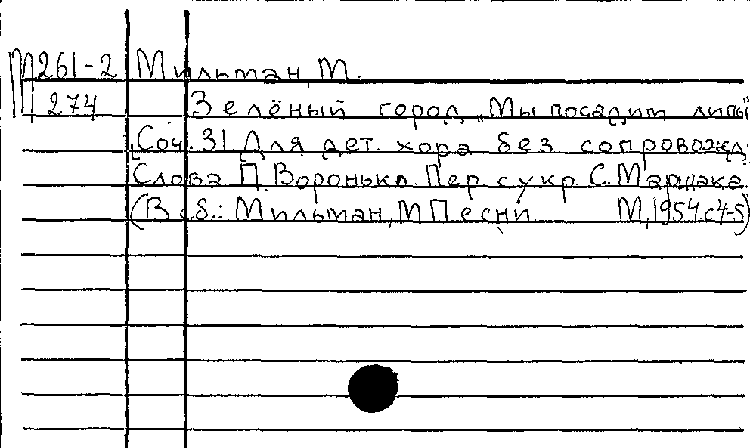 М261-2 Мильман, М.
274 Зелёный город. „Мы посадим липы"
Соч. 31. Для дет. хора без сопровожд.
Слова П. Воронько. Пер. с укр. С. Маршака.
(В сб.: Мильман, М. Песни М., 1954. с. 4-5)